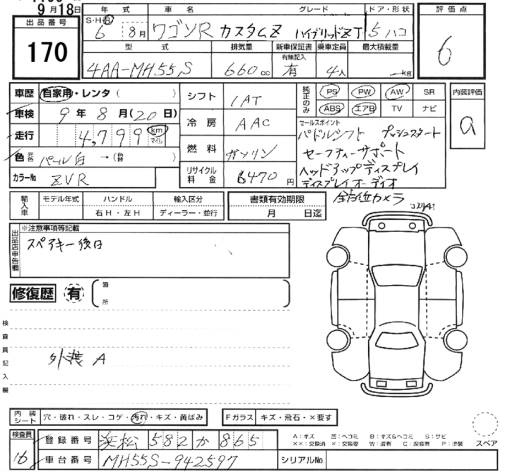 9月18日
出品番号
170
S・H・R 年式 車名 グレード ドア・形状
6年 8月 ワゴンR カスタムZ ハイブリッドZT 5 ハコ
評価点
6
型式 排気量 新車保証書 乗車定員 最大積載量
有無記入
4AA-MH55S 660cc 有 4人 kg
車歴 自家用・レンタ ( )
車検 9年 8月 (20日)
走行 4,799 km マイル
色 元色 パール白 → (替色 )
カラーNo ZVR
シフト IAT
冷房 AAC
燃料 ガソリン
リサイクル料金 8470円
純正のみ PS PW AW SR
ABS エアB TV ナビ
セールスポイント
パドルシフト プッシュスタート
セーフティーサポート
ヘッドアップディスプレイ
ディスプレイオーディオ
全方位カメラ
内装評価
a
輸入車 モデル年式 ハンドル 輸入区分
年 右H・左H ディーラー・並行
書類有効期限
月 日迄
※注意事項等記載
スペアキー後日
修復歴 有
箇所
検査員記入欄
外装A
内装シート 穴・破れ・スレ・コゲ・汚れ・キズ・黄ばみ
Fガラス キズ・飛石・×要す
検査員
16
登録番号 浜松 582 か 865
車台番号 MH55S-942597
シリアルNo
A:キズ U:凹ミ B:キズ&凹ミ S:サビ
スペア